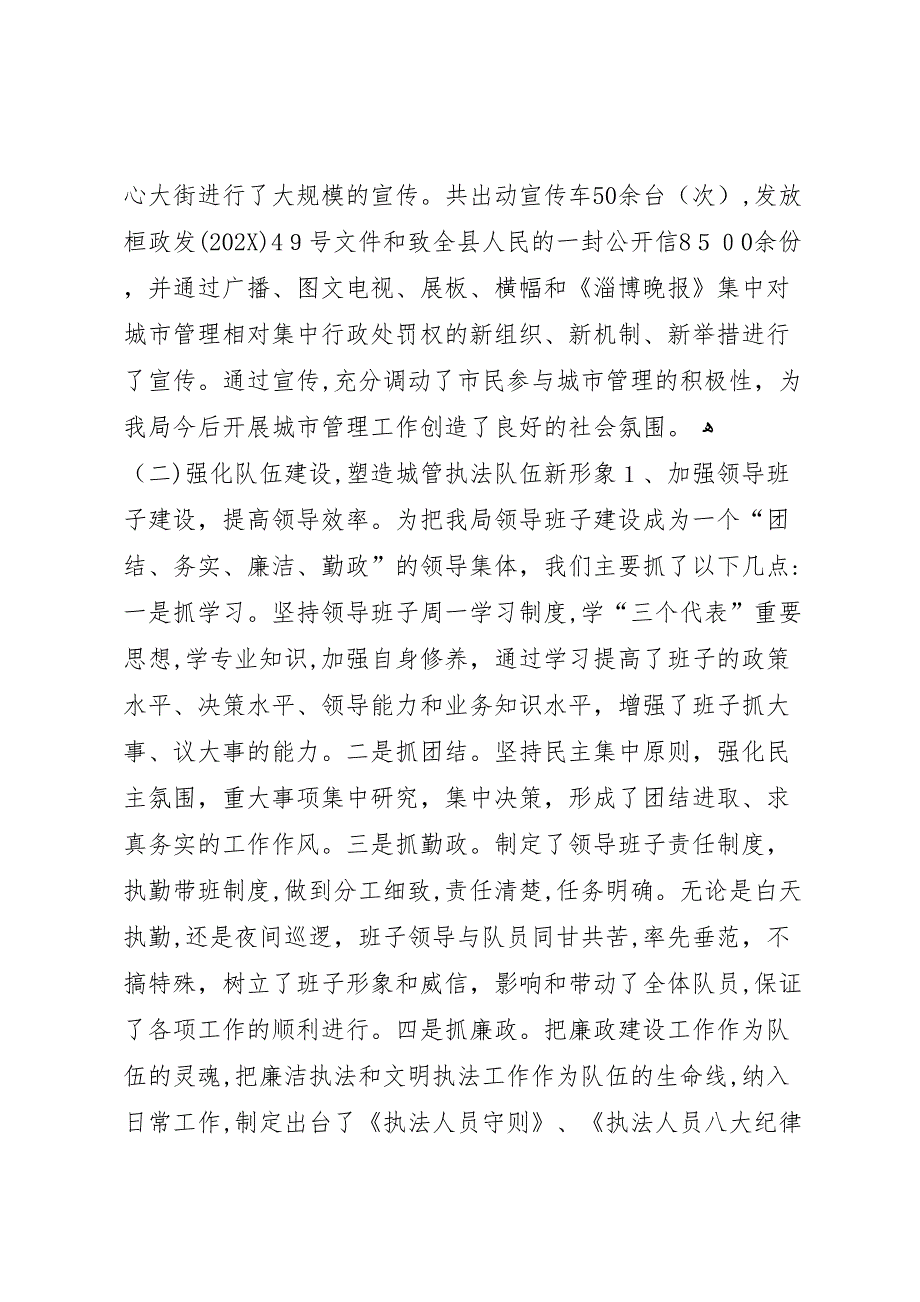 心大街进行了大规模的宣传。共出动宣传车50余台（次）,发放
桓政发(202X)4９号文件和致全县人民的一封公开信8５００余份
，并通过广播、图文电视、展板、横幅和《淄博晚报》集中对
城市管理相对集中行政处罚权的新组织、新机制、新举措进行
了宣传。通过宣传,充分调动了市民参与城市管理的积极性，为
我局今后开展城市管理工作创造了良好的社会氛围。 ﻫ
（二)强化队伍建设,塑造城管执法队伍新形象１、加强领导班
子建设，提高领导效率。为把我局领导班子建设成为一个“团
结、务实、廉洁、勤政”的领导集体，我们主要抓了以下几点:
一是抓学习。坚持领导班子周一学习制度,学“三个代表”重要
思想,学专业知识,加强自身修养，通过学习提高了班子的政策
水平、决策水平、领导能力和业务知识水平，增强了班子抓大
事、议大事的能力。二是抓团结。坚持民主集中原则，强化民
主氛围，重大事项集中研究，集中决策，形成了团结进取、求
真务实的工作作风。三是抓勤政。制定了领导班子责任制度，
执勤带班制度,做到分工细致,责任清楚,任务明确。无论是白天
执勤,还是夜间巡逻，班子领导与队员同甘共苦,率先垂范，不
搞特殊，树立了班子形象和威信，影响和带动了全体队员,保证
了各项工作的顺利进行。四是抓廉政。把廉政建设工作作为队
伍的灵魂,把廉洁执法和文明执法工作作为队伍的生命线,纳入
日常工作,制定出台了《执法人员守则》、《执法人员八大纪律